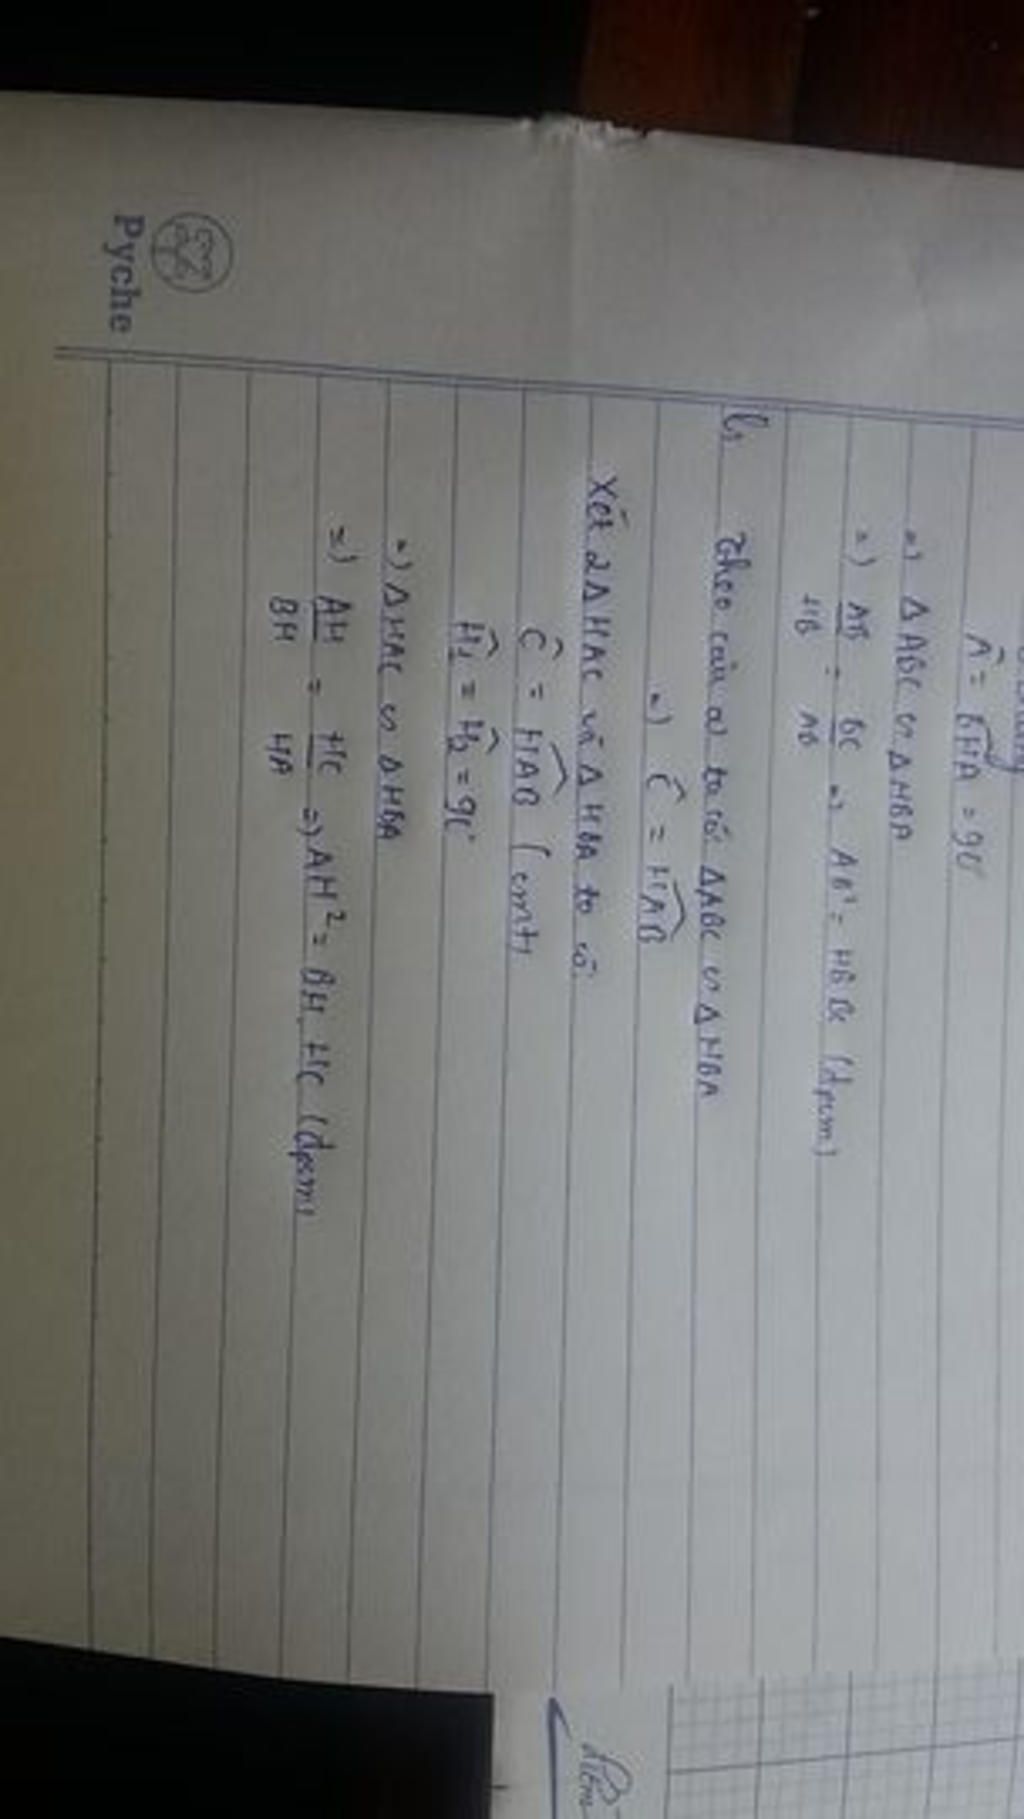 Â = BHA = 90
=) Δ ABC ∽ Δ HBA
=) AB/HB = BC/AB =) AB² = HB.BC (đpcm)
b, Theo câu a) ta có ΔABC ∽ Δ HBA
=) Ĉ = HAB
Xét 2Δ HAC và Δ HBA ta có
Ĉ = HAB (cmt)
Ĥ₁ = Ĥ₂ = 90°
=) Δ HAC ∽ Δ HBA
=) AH/BH = HC/HA =) AH² = BH.HC (đpcm)
Pyche